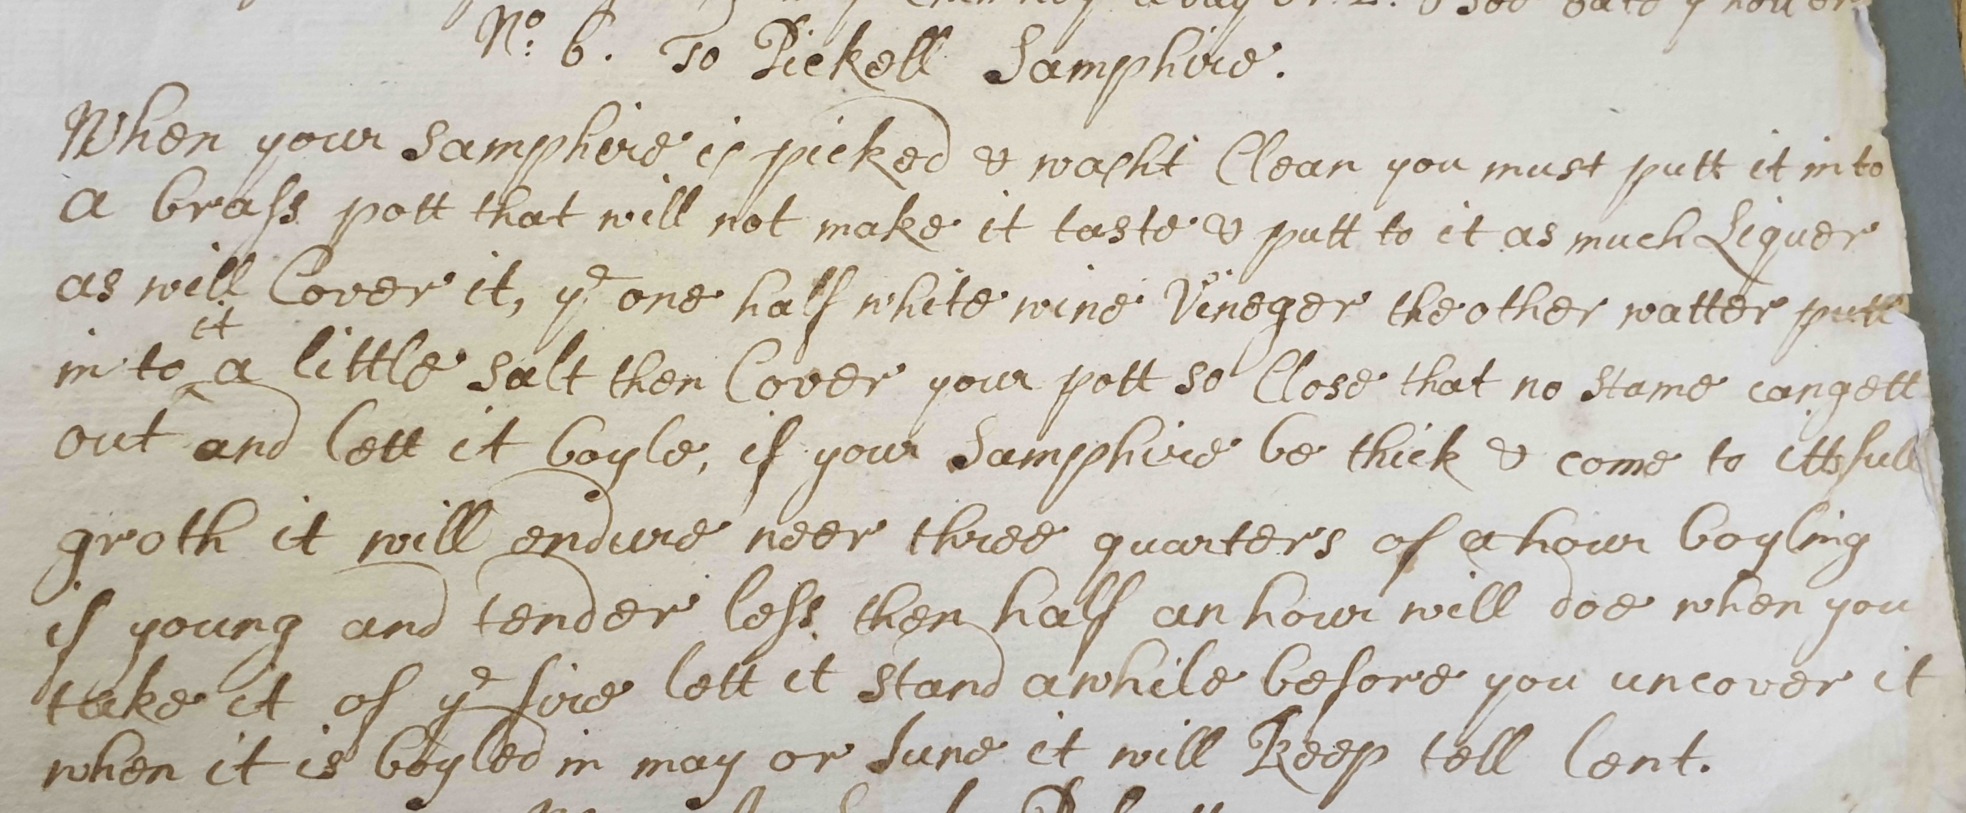 No: 6. To Pickell Samphire.
When your samphire is picked & washt Clean you must putt it into
a brass pott that will not make it taste & putt to it as much Liquer
as will Cover it, ye one half white wine Vineger the other watter putt
in to ^it a little salt then Cover your pott so Close that no stame can gett
out and lett it boyle, if your Samphire be thick & come to itts full
groth it will endure neer three quarters of a hour boyling
if young and tender less then half an hour will doe when you
take it of ye fire lett it stand awhile before you uncover it
when it is boyled in may or June it will Keep tell Lent.